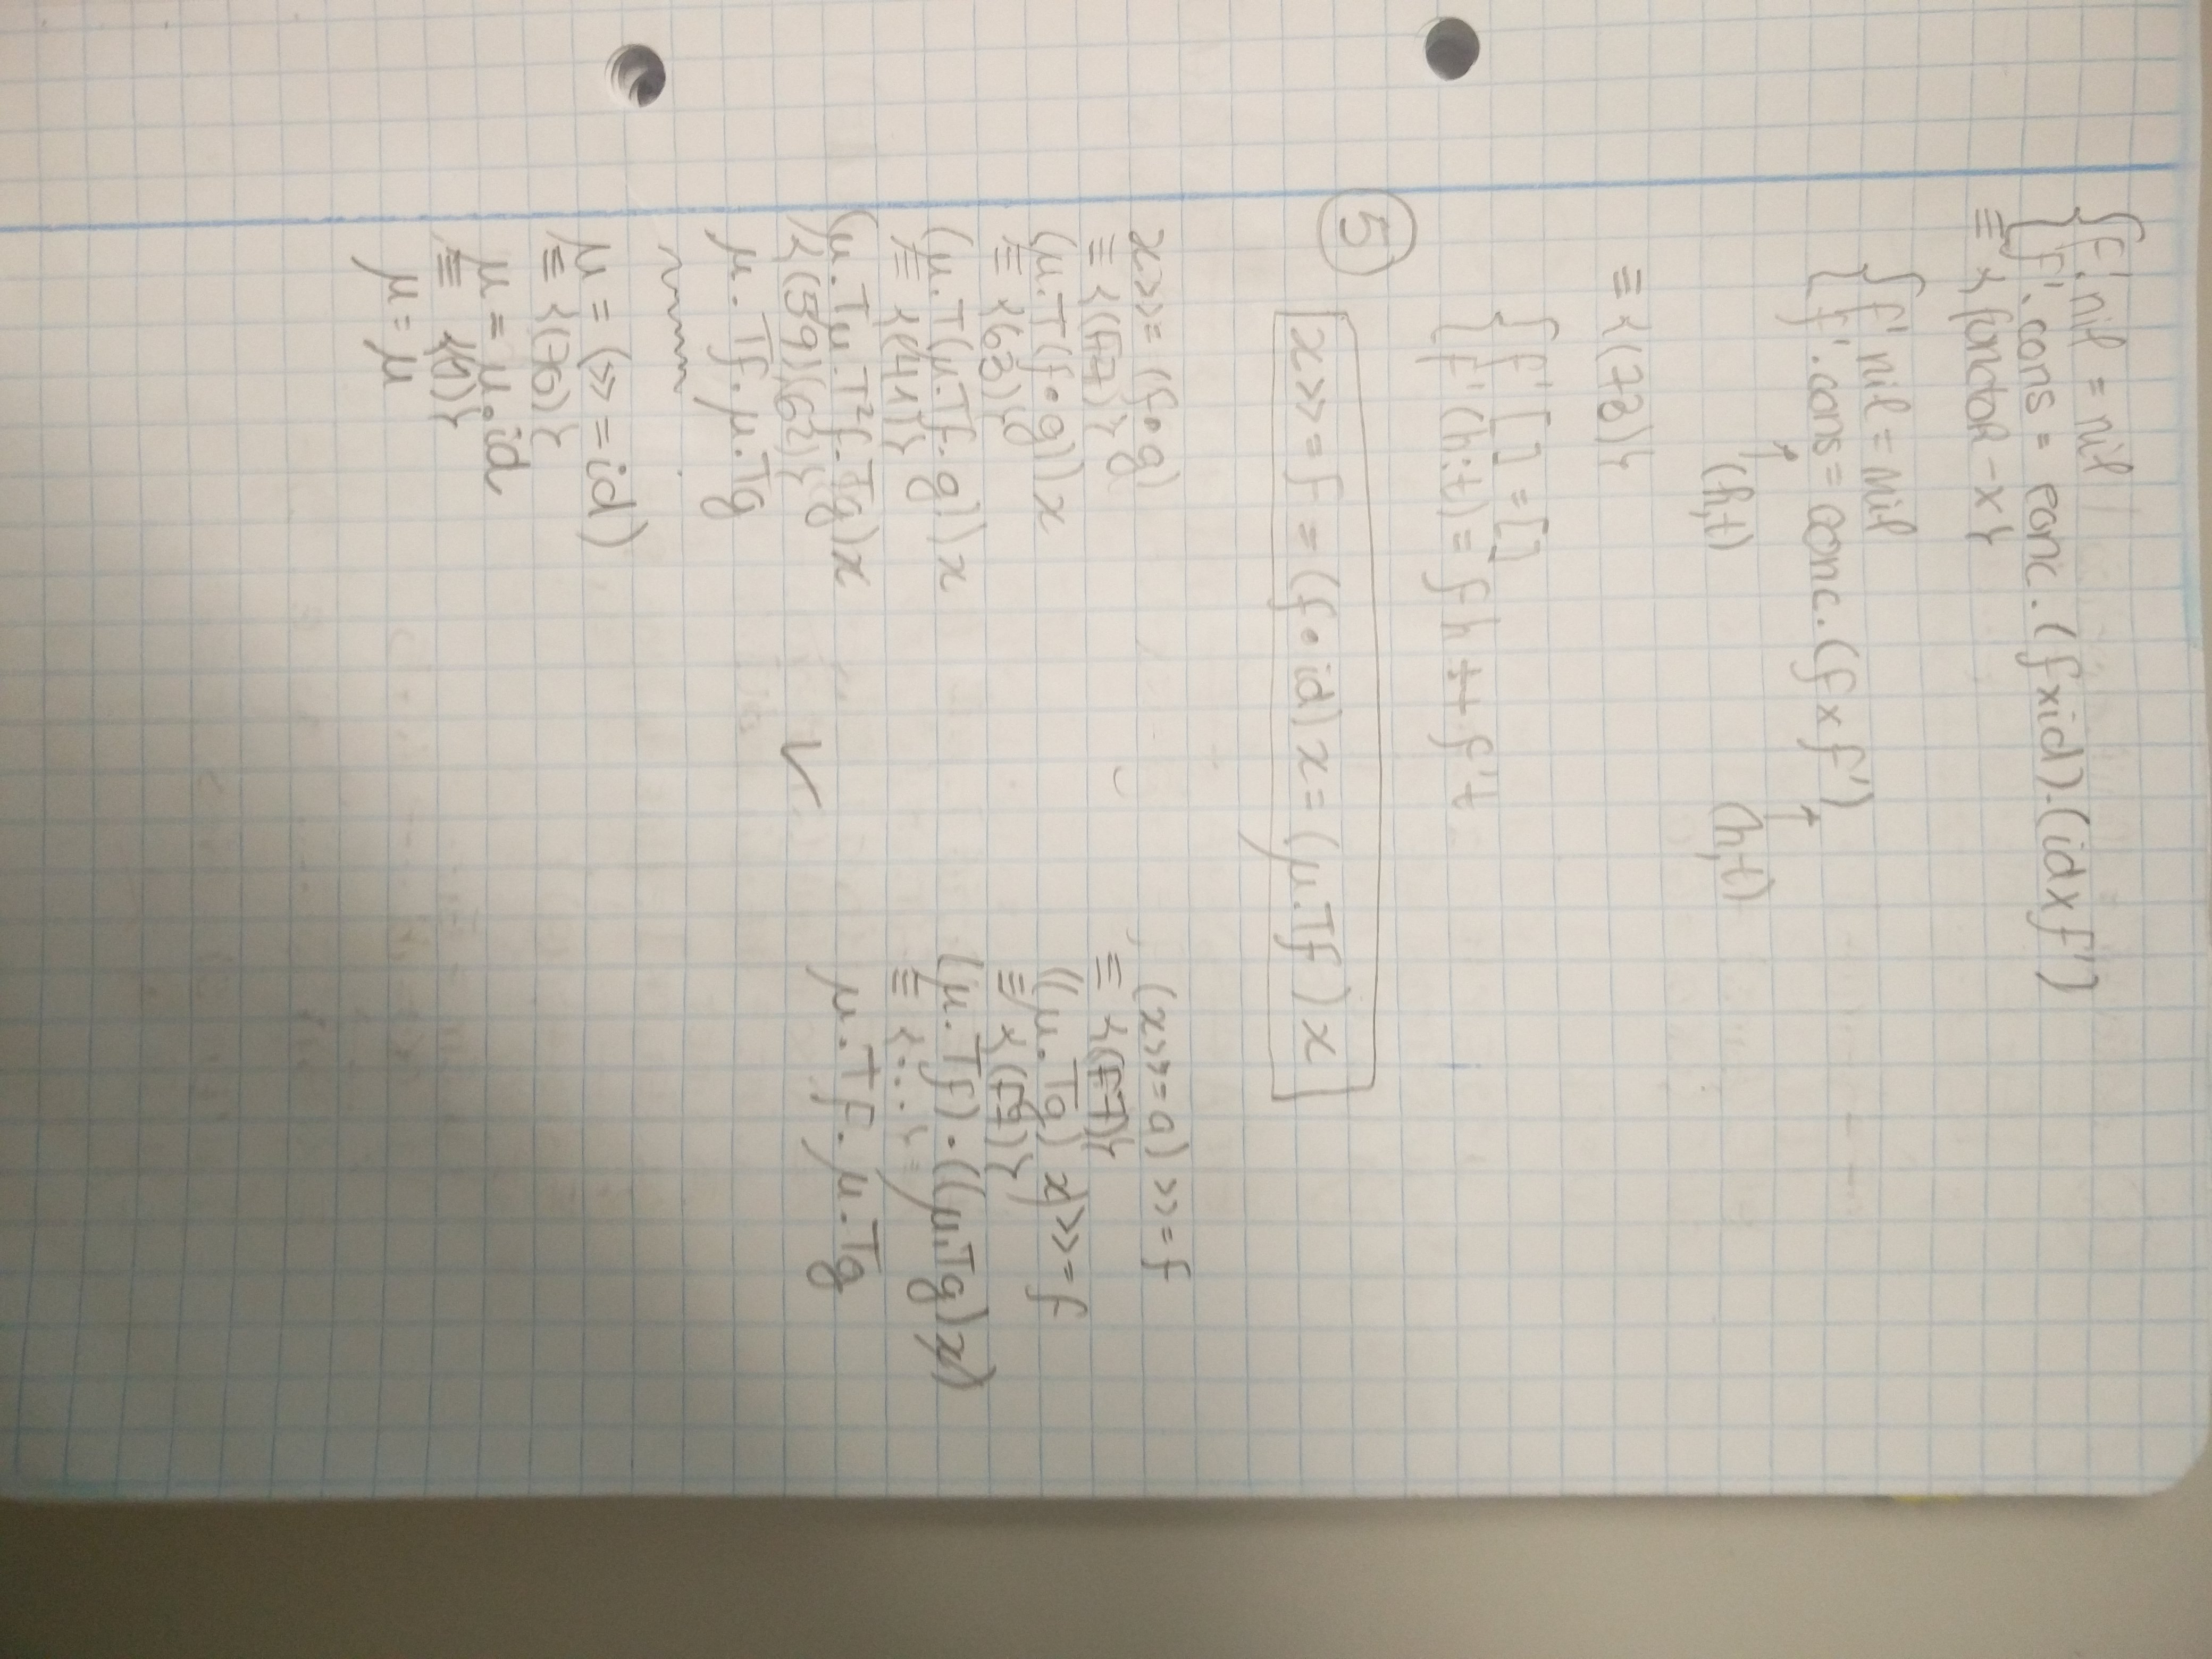 {f'.nil = nil
{f'.cons = conc.(f×id).(id×f')
≡ {functor-×}
{f' nil = nil
{f'.cons = conc.(f×f')
(h,t) (h,t)
≡ {(73)}
{f' [ ] = [ ]
{f'(h:t) = f h ++ f't
5
x>>=f = (f•id) x = (μ.Tf) x
x>>= (f•g)
≡ {(F7)}
(μ.T(f•g))x
≡ {63)}
(μ.T(μ.Tf.g))x
≡ {(41)}
(μ.Tμ.T²f.Tg)x
{(59)(62)}
μ.Tf.μ.Tg
μ = (>>=id)
≡ {(70)}
μ = μ•id
≡ {(1)}
μ = μ
(x>>=g) >>=f
≡ {(F7)}
((μ.Tg) x)>>=f
≡ {(F7)}
(μ.Tf).((μ.Tg)x)
≡ {...}
μ.Tf.μ.Tg